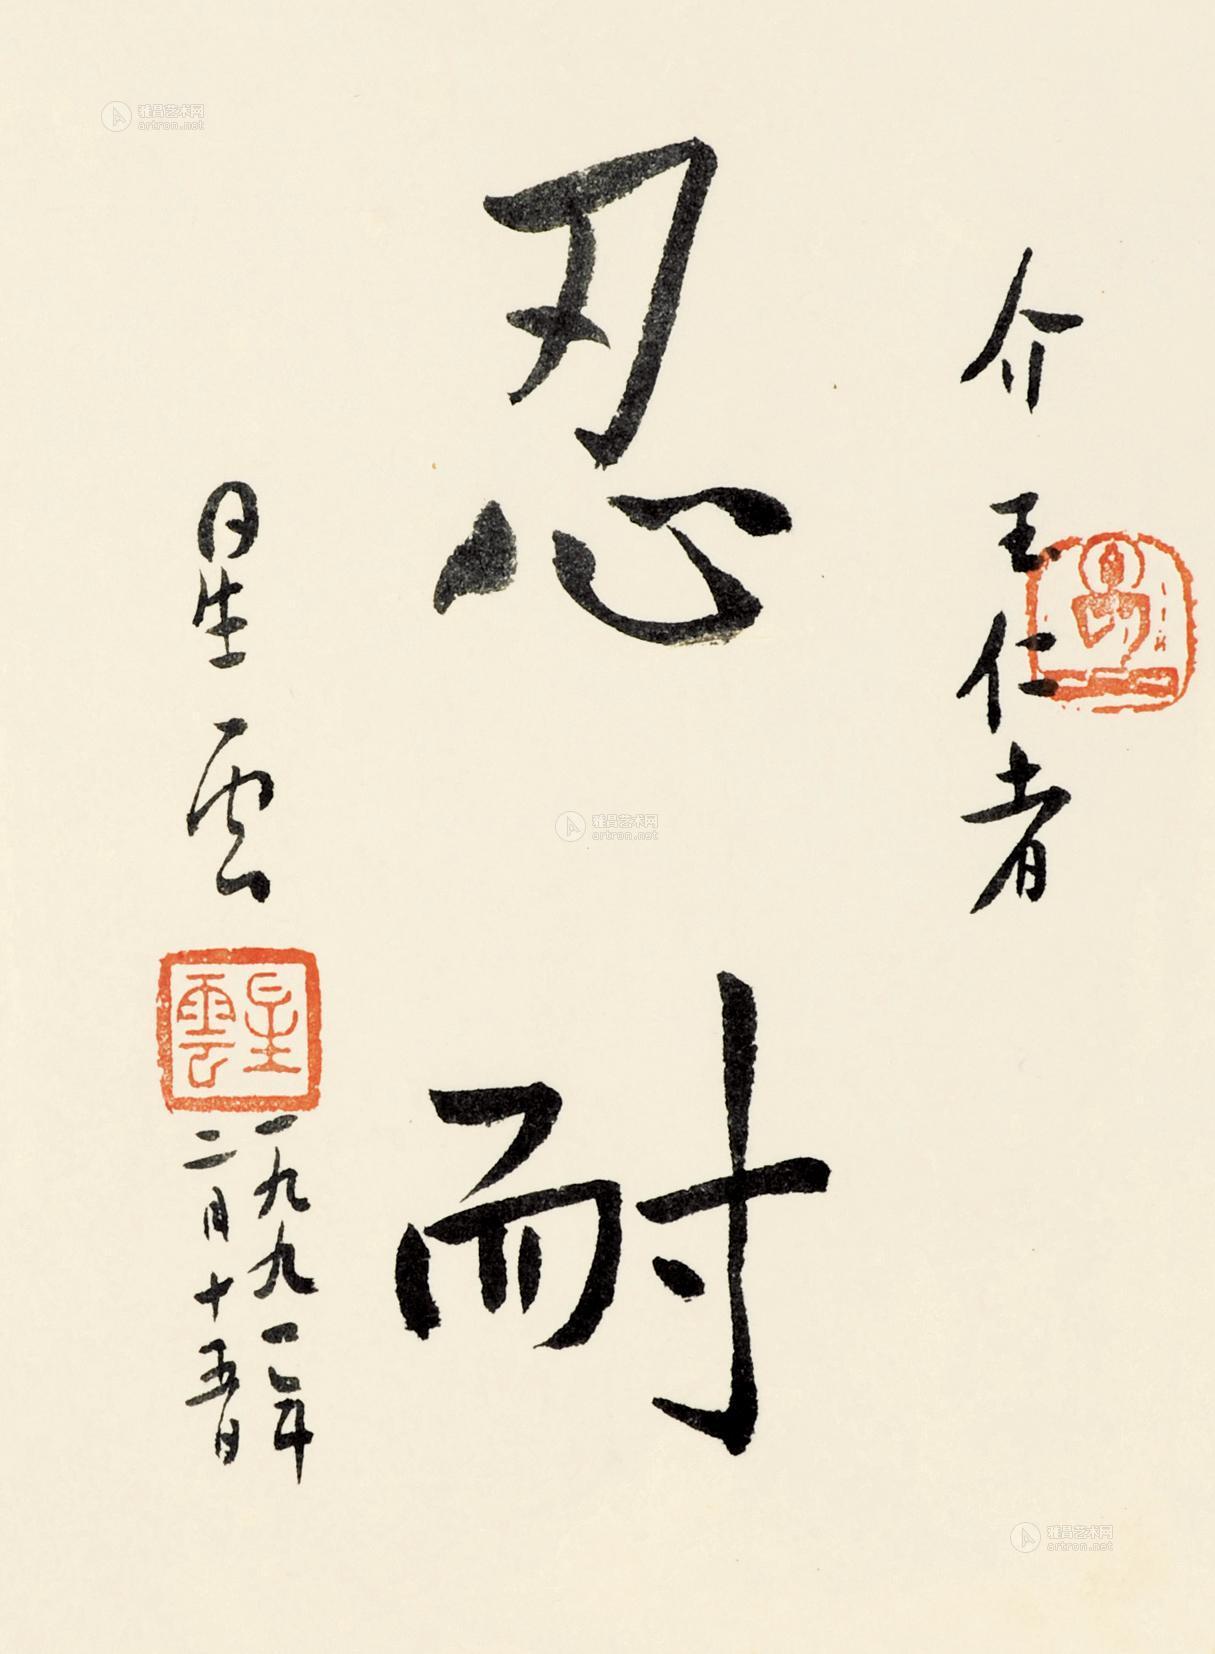 介玉仁者
忍耐
星雲
星雲
一九九一年
二月十五日
雅昌艺术网
artron.net
雅昌艺术网
artron.net
雅昌艺术网
artron.net